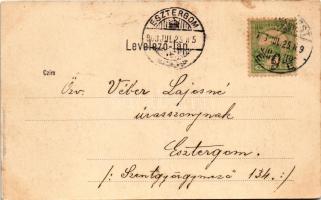 ESZTERGOM
Levelező-lap.
Czím
Özv. Véber Lajosné
úrasszonynak
Esztergom.
/: Szentgyörgymező 134. :/